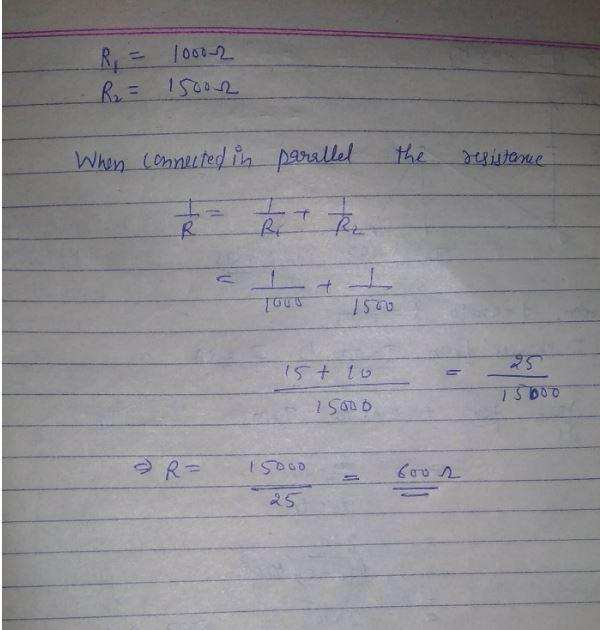 R₁ = 1000Ω
R₂ = 1500Ω
When connected in parallel the resistance
1/R = 1/R₁ + 1/R₂
= 1/1000 + 1/1500
15 + 10/15000 = 25/15000
⇒ R = 15000/25 = 600 Ω